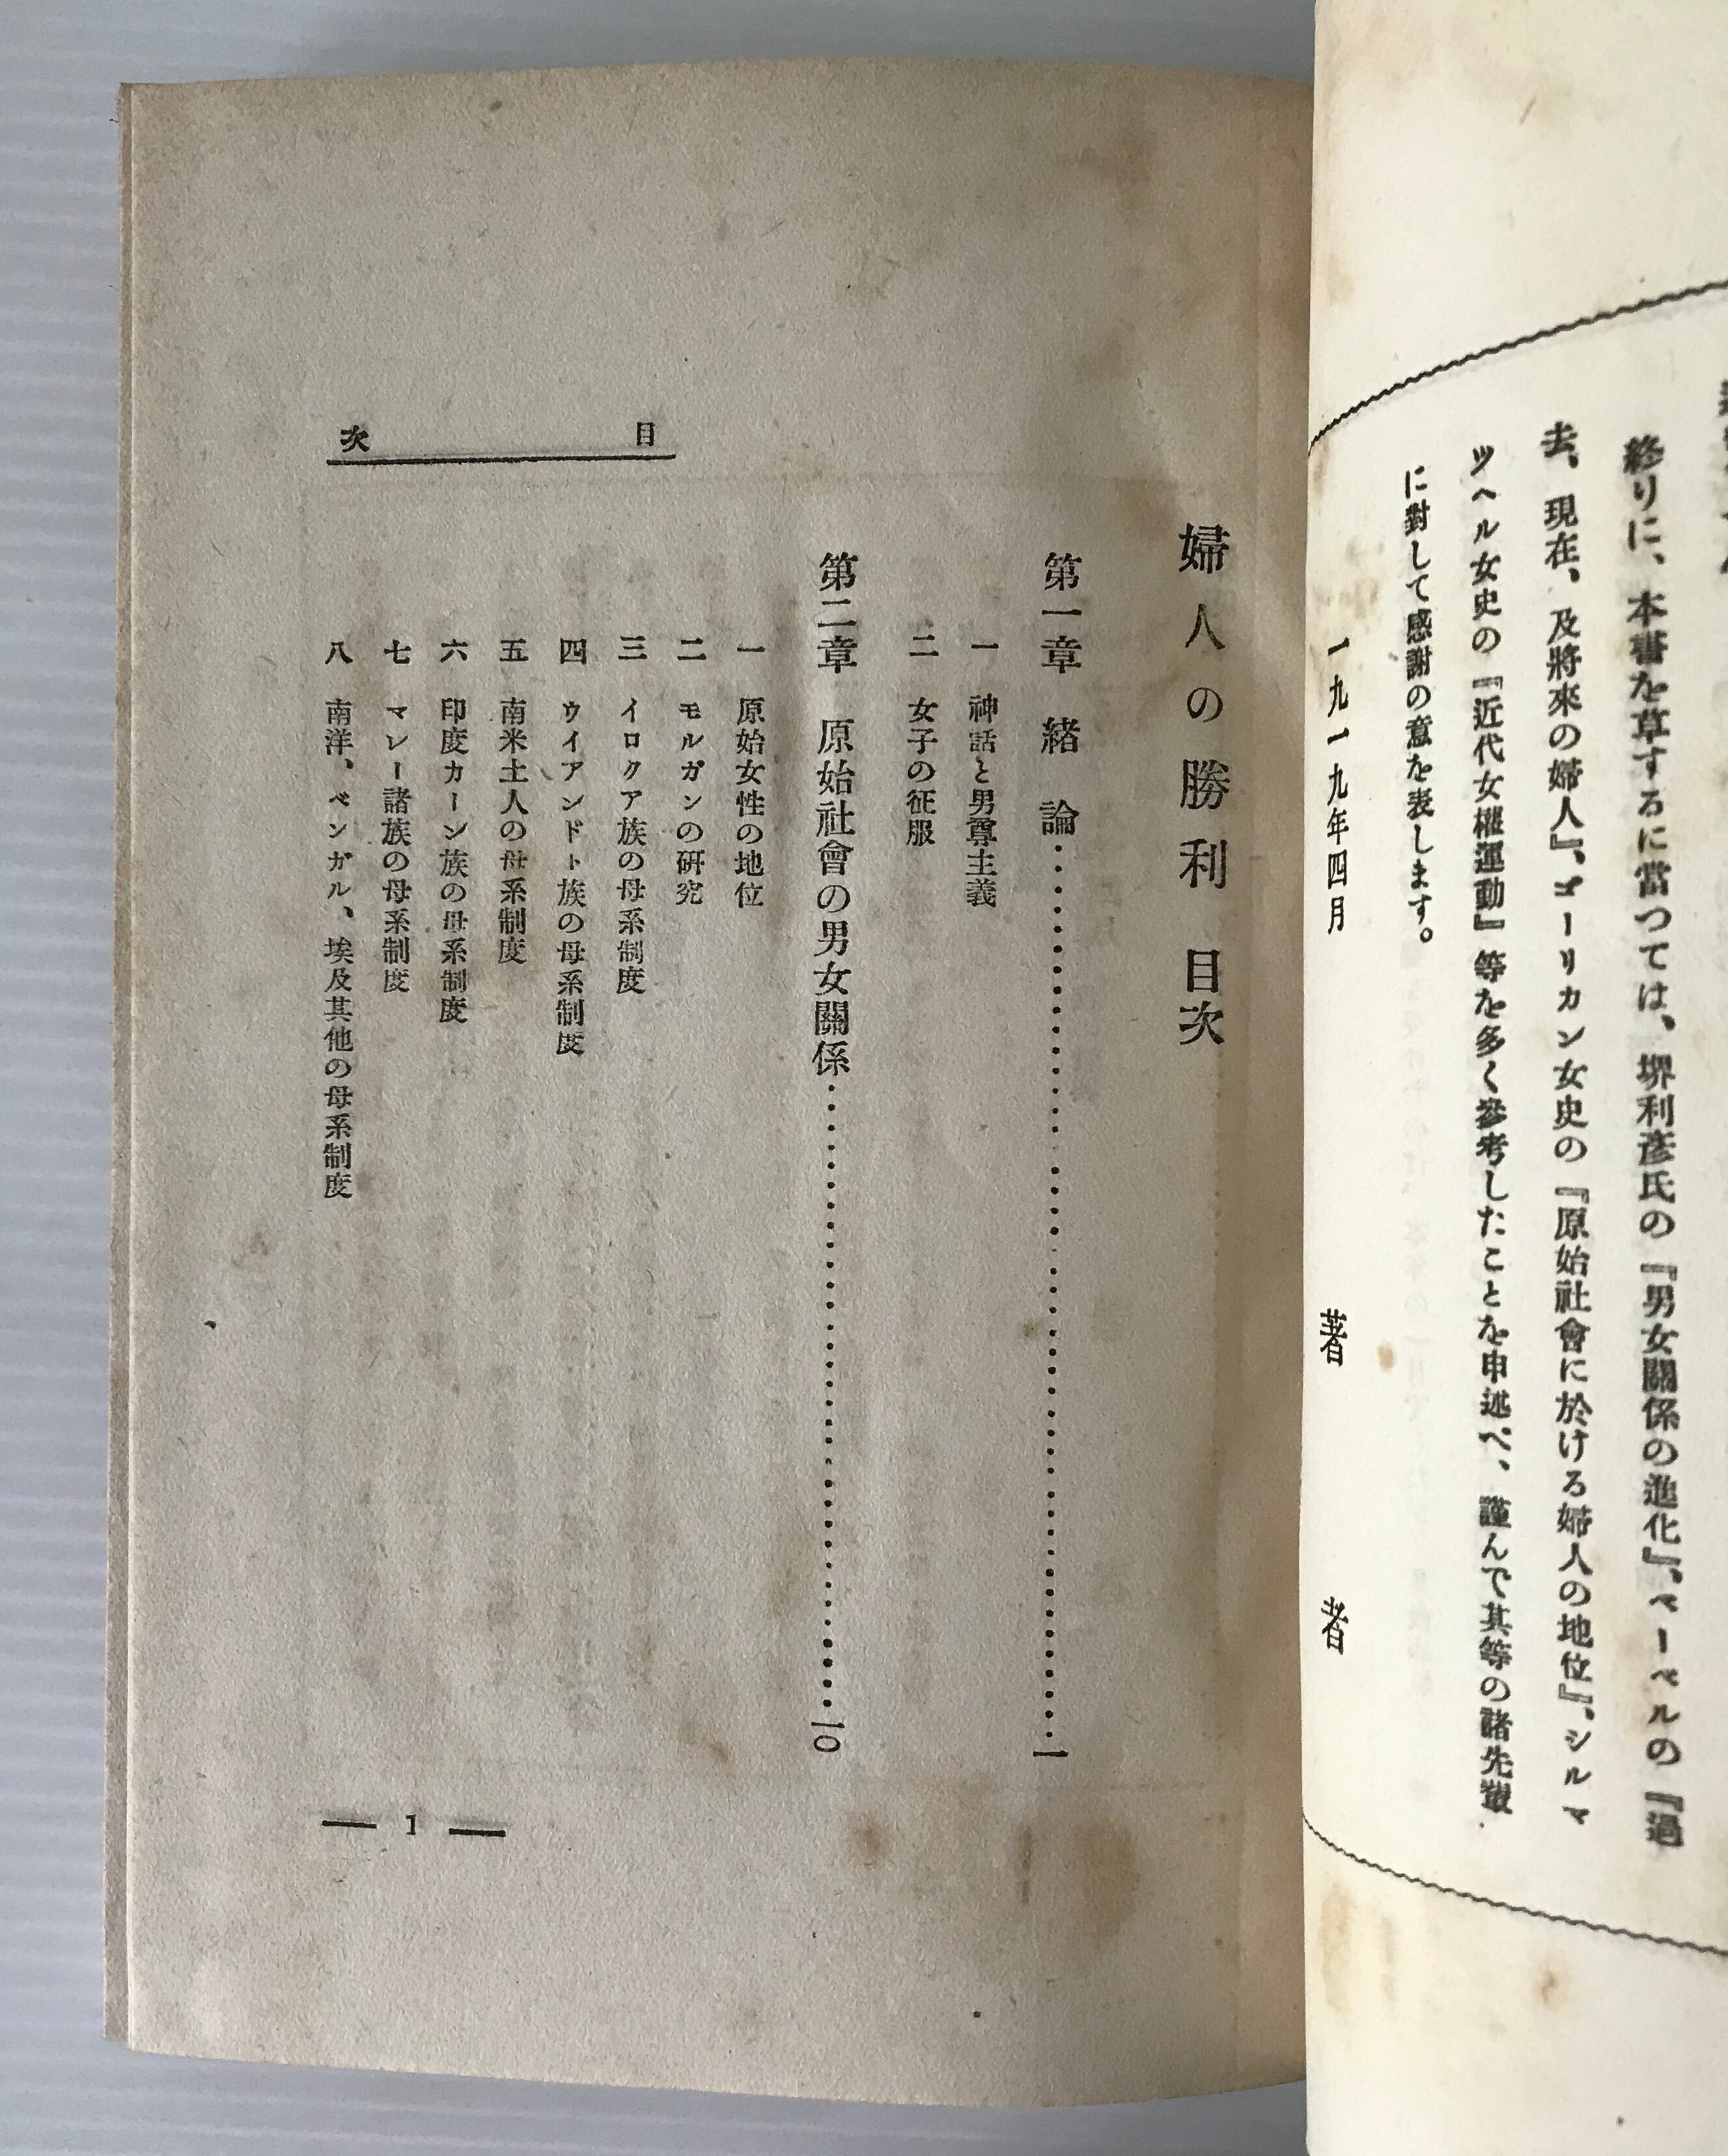 終りに、本書を草するに當つては、堺利彦氏の『男女關係の進化』、ベーベルの『過
去、現在、及將來の婦人』、ゴーリカン女史の『原始社會に於ける婦人の地位』、シルマ
ツヘル女史の『近代女權運動』等を多く參考したことを申述べ、謹んで其等の諸先輩
に對して感謝の意を表します。
一九一九年四月
著者
婦人の勝利 目次
第一章 緒論……一
一 神話と男尊主義
二 女子の征服
第二章 原始社會の男女關係……一〇
一 原始女性の地位
二 モルガンの研究
三 イロクア族の母系制度
四 ウイアンドト族の母系制度
五 南米土人の母系制度
六 印度カーン族の母系制度
七 マレー諸族の母系制度
八 南洋、ベンガル、埃及其他の母系制度
目次
— 1 —